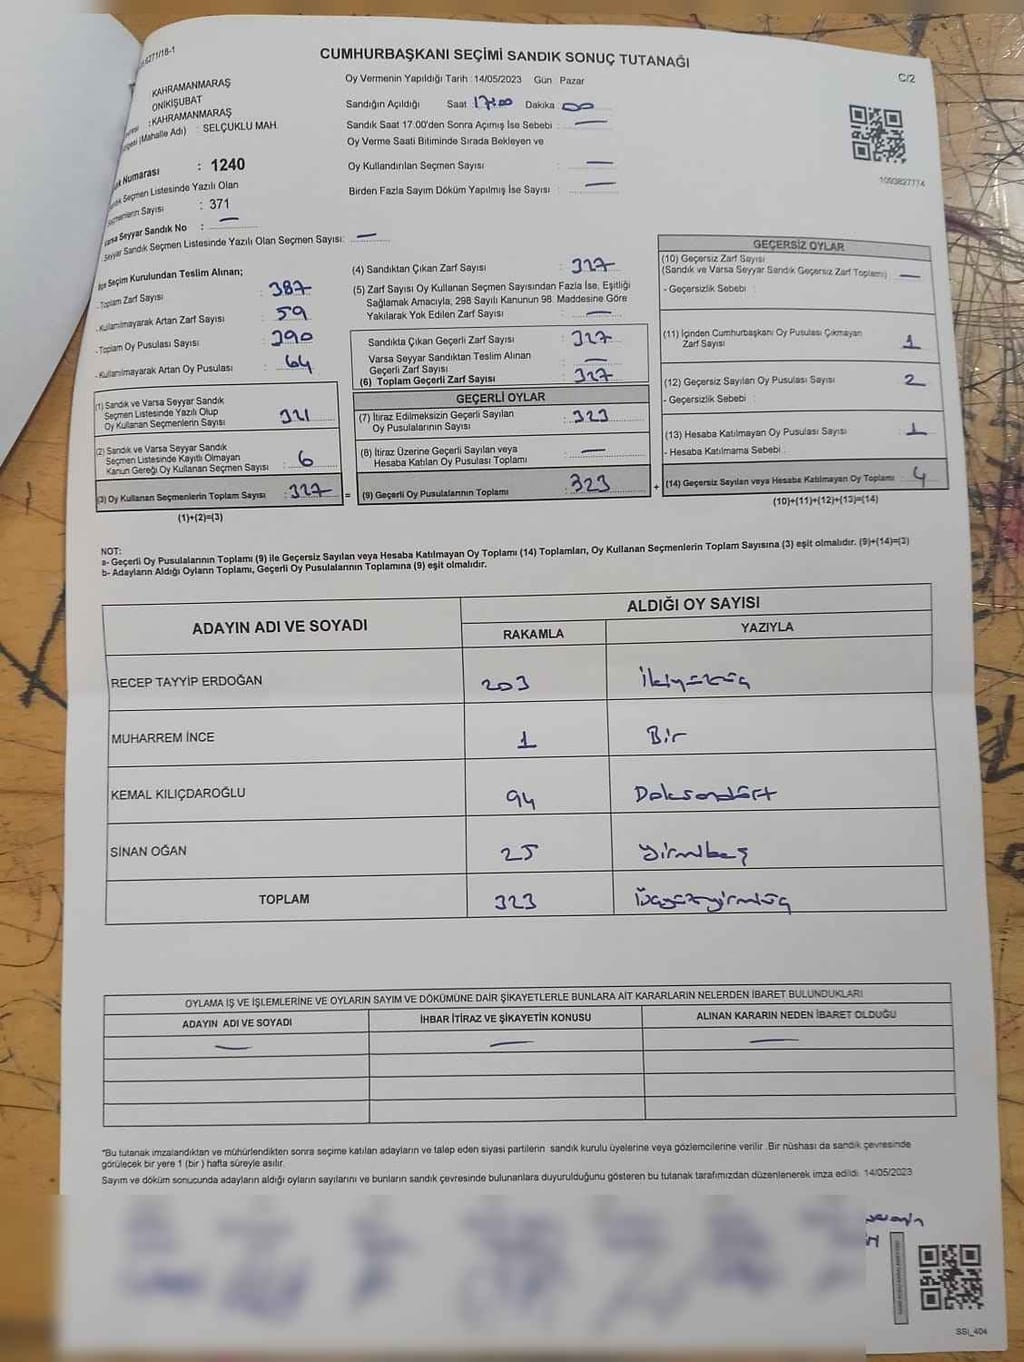 5271/18-1
CUMHURBAŞKANI SEÇİMİ SANDIK SONUÇ TUTANAĞI
C/2
Oy Vermenin Yapıldığı Tarih : 14/05/2023 Gün Pazar
KAHRAMANMARAŞ
ONİKİŞUBAT
: KAHRAMANMARAŞ
(Mahalle Adı) : SELÇUKLU MAH.
Sandığın Açıldığı Saat 17:00 Dakika 00
Sandık Saat 17.00'den Sonra Açımış İse Sebebi : —
Oy Verme Saati Bitiminde Sırada Bekleyen ve
Oy Kullandırılan Seçmen Sayısı : —
Birden Fazla Sayım Döküm Yapılmış İse Sayısı : —
1093827774
Numarası : 1240
Seçmen Listesinde Yazılı Olan
Seçmenlerin Sayısı : 371
Varsa Seyyar Sandık No : —
Seyyar Sandık Seçmen Listesinde Yazılı Olan Seçmen Sayısı: —
Seçim Kurulundan Teslim Alınan;
-Toplam Zarf Sayısı : 387
-Kullanılmayarak Artan Zarf Sayısı : 59
-Toplam Oy Pusulası Sayısı : 390
-Kullanılmayarak Artan Oy Pusulası : 64
(1) Sandık ve Varsa Seyyar Sandık
Seçmen Listesinde Yazılı Olup
Oy Kullanan Seçmenlerin Sayısı : 321
(2) Sandık ve Varsa Seyyar Sandık
Seçmen Listesinde Kayıtlı Olmayan
Kanun Gereği Oy Kullanan Seçmen Sayısı : 6
(3) Oy Kullanan Seçmenlerin Toplam Sayısı : 327 =
(1)+(2)=(3)
(4) Sandıktan Çıkan Zarf Sayısı : 327
(5) Zarf Sayısı Oy Kullanan Seçmen Sayısından Fazla İse, Eşitliği
Sağlamak Amacıyla, 298 Sayılı Kanunun 98. Maddesine Göre
Yakılarak Yok Edilen Zarf Sayısı : —
Sandıkta Çıkan Geçerli Zarf Sayısı : 327
Varsa Seyyar Sandıktan Teslim Alınan
Geçerli Zarf Sayısı : —
(6) Toplam Geçerli Zarf Sayısı : 327
GEÇERLİ OYLAR
(7) İtiraz Edilmeksizin Geçerli Sayılan
Oy Pusulalarının Sayısı : 323
(8) İtiraz Üzerine Geçerli Sayılan veya
Hesaba Katılan Oy Pusulası Toplamı : —
(9) Geçerli Oy Pusulalarının Toplamı : 323 +
GEÇERSİZ OYLAR
(10) Geçersiz Zarf Sayısı
(Sandık ve Varsa Seyyar Sandık Geçersiz Zarf Toplamı) : —
- Geçersizlik Sebebi :
(11) İçinden Cumhurbaşkanı Oy Pusulası Çıkmayan
Zarf Sayısı : 1
(12) Geçersiz Sayılan Oy Pusulası Sayısı : 2
- Geçersizlik Sebebi :
(13) Hesaba Katılmayan Oy Pusulası Sayısı : 1
- Hesaba Katılmama Sebebi :
(14) Geçersiz Sayılan veya Hesaba Katılmayan Oy Toplamı : 4
(10)+(11)+(12)+(13)=(14)
NOT:
a- Geçerli Oy Pusulalarının Toplamı (9) ile Geçersiz Sayılan veya Hesaba Katılmayan Oy Toplamı (14) Toplamları, Oy Kullanan Seçmenlerin Toplam Sayısına (3) eşit olmalıdır. (9)+(14)=(3)
b- Adayların Aldığı Oyların Toplamı, Geçerli Oy Pusulalarının Toplamına (9) eşit olmalıdır.
ADAYIN ADI VE SOYADI
ALDIĞI OY SAYISI
RAKAMLA YAZIYLA
RECEP TAYYİP ERDOĞAN 203 İkiyüzüç
MUHARREM İNCE 1 Bir
KEMAL KILIÇDAROĞLU 94 Doksandört
SİNAN OĞAN 25 Yirmibeş
TOPLAM 323 Üçyüzyirmiüç
OYLAMA İŞ VE İŞLEMLERİNE VE OYLARIN SAYIM VE DÖKÜMÜNE DAİR ŞİKAYETLERLE BUNLARA AİT KARARLARIN NELERDEN İBARET BULUNDUKLARI
ADAYIN ADI VE SOYADI İHBAR İTİRAZ VE ŞİKAYETİN KONUSU ALINAN KARARIN NEDEN İBARET OLDUĞU
— — —
*Bu tutanak imzalandıktan ve mühürlendikten sonra seçime katılan adayların ve talep eden siyasi partilerin sandık kurulu üyelerine veya gözlemcilerine verilir .Bir nüshası da sandık çevresinde
görülecek bir yere 1 (bir ) hafta süreyle asılır.
Sayım ve döküm sonucunda adayların aldığı oyların sayılarını ve bunların sandık çevresinde bulunanlara duyurulduğunu gösteren bu tutanak tarafımızdan düzenlenerek imza edildi. 14/05/2023
SSİ_404